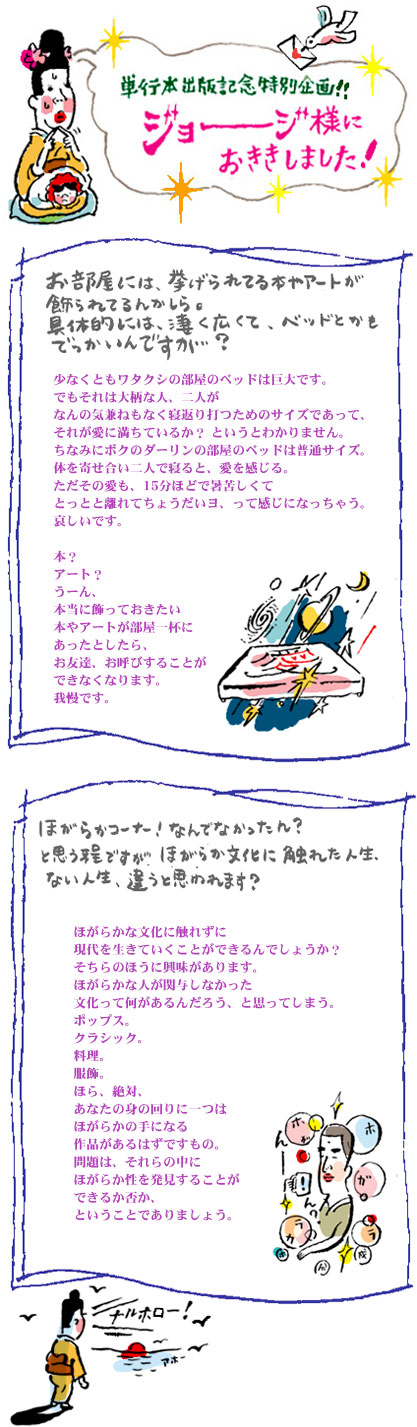 単行本出版記念特別企画!!
ジョージ様に
おききしました!
お部屋には、挙げられてる本やアートが
飾られてるんかしら。
具体的には、凄く広くて、ベッドとかも
でっかいんですか…?
少なくともワタクシの部屋のベッドは巨大です。
でもそれは大柄な人、二人が
なんの気兼ねもなく寝返り打つためのサイズであって、
それが愛に満ちているか? というとわかりません。
ちなみにボクのダーリンの部屋のベッドは普通サイズ。
体を寄せ合い二人で寝ると、愛を感じる。
ただその愛も、15分ほどで暑苦しくて
とっとと離れてちょうだいヨ、って感じになっちゃう。
哀しいです。
本?
アート?
うーん、
本当に飾っておきたい
本やアートが部屋一杯に
あったとしたら、
お友達、お呼びすることが
できなくなります。
我慢です。
ほがらかコーナー!なんでなかったん?
と思う程ですが、ほがらか文化に触れた人生、
ない人生、違うと思われます?
ほがらかな文化に触れずに
現代を生きていくことができるんでしょうか?
そちらのほうに興味があります。
ほがらかな人が関与しなかった
文化って何があるんだろう、と思ってしまう。
ポップス。
クラシック。
料理。
服飾。
ほら、絶対、
あなたの身の回りに一つは
ほがらかの手になる
作品があるはずですもの。
問題は、それらの中に
ほがらか性を発見することが
できるか否か、
ということでありましょう。
ナルホロー!
アホー